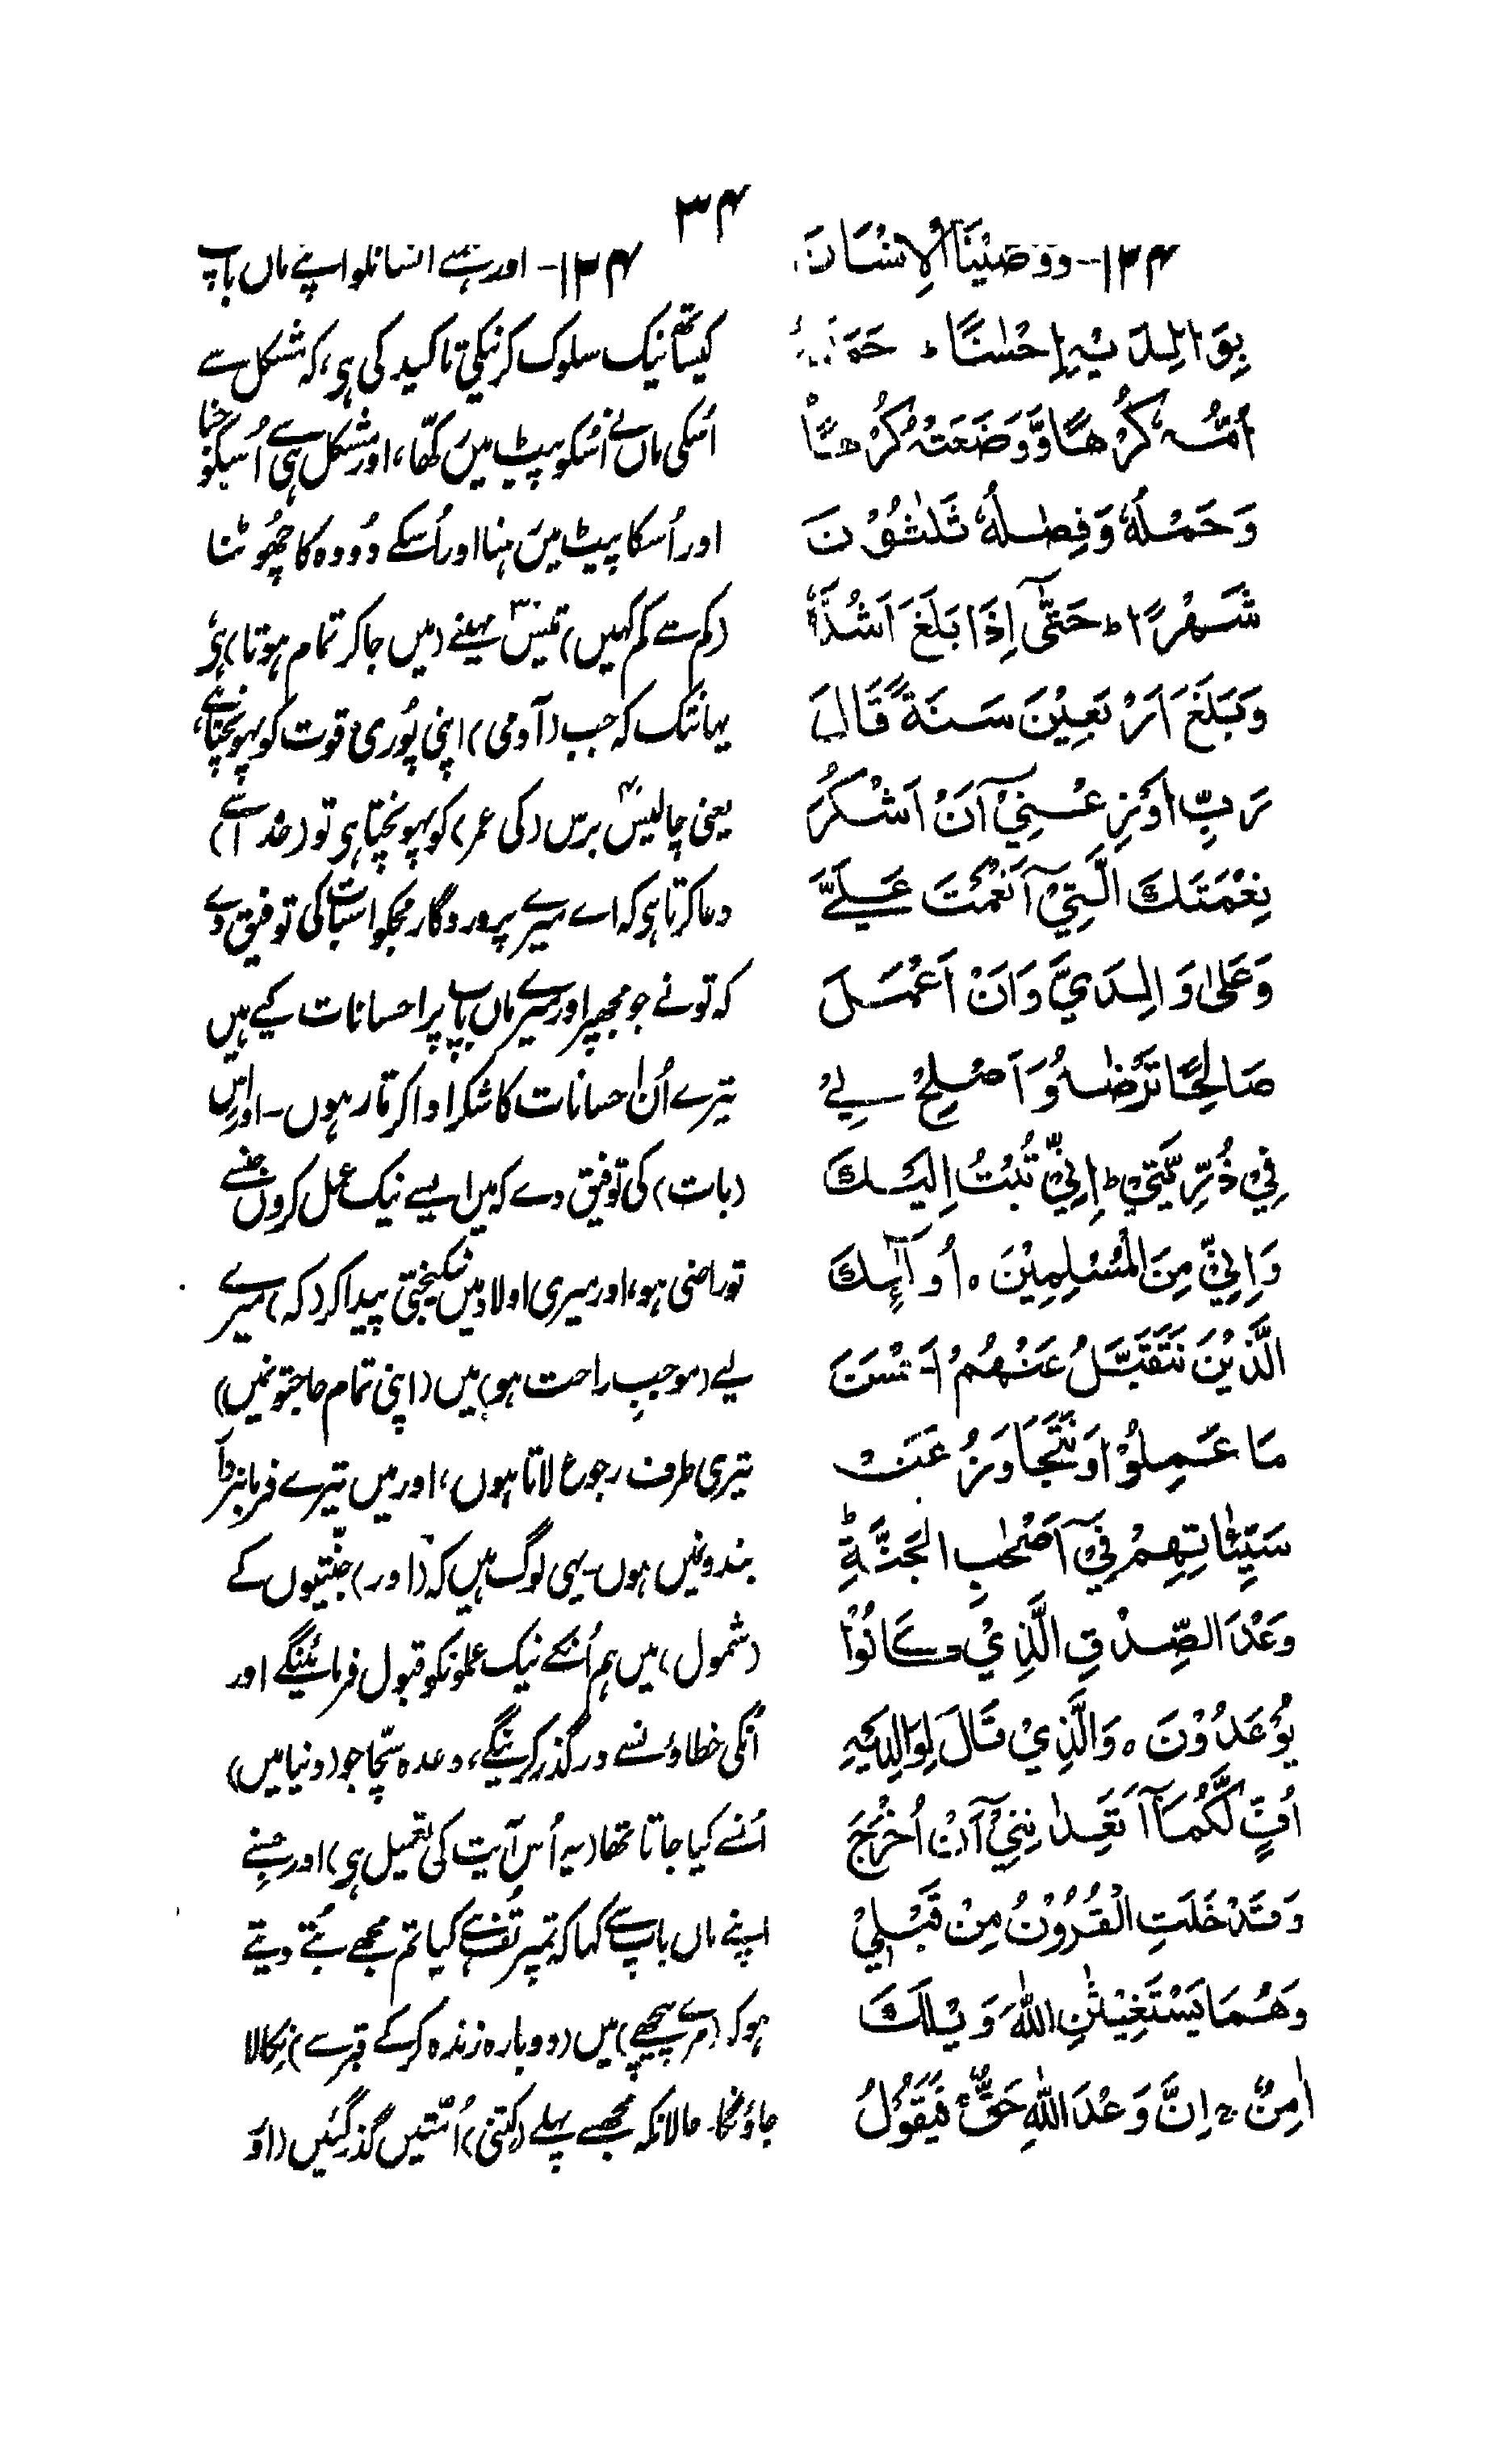 ۳۴
۱۲۴- وَوَصَّيْنَا الْاِنْسَانَ
بِوَالِدَيْهِ اِحْسٰنًا ط
اُمُّهٗ كُرْهًا وَّوَضَعَتْهُ كُرْهًا
وَحَمْلُهٗ وَفِصٰلُهٗ ثَلٰثُوْنَ
شَهْرًا ط حَتّٰٓى اِذَا بَلَغَ اَشُدَّهٗ
وَبَلَغَ اَرْبَعِيْنَ سَنَةً قَالَ
رَبِّ اَوْزِعْنِيْٓ اَنْ اَشْكُرَ
نِعْمَتَكَ الَّتِيْٓ اَنْعَمْتَ عَلَيَّ
وَعَلٰى وَالِدَيَّ وَاَنْ اَعْمَلَ
صَالِحًا تَرْضٰهُ وَاَصْلِحْ لِيْ
فِيْ ذُرِّيَّتِيْ ط اِنِّيْ تُبْتُ اِلَيْكَ
وَاِنِّيْ مِنَ الْمُسْلِمِيْنَ ہ اُولٰٓئِكَ
الَّذِيْنَ نَتَقَبَّلُ عَنْهُمْ اَحْسَنَ
مَا عَمِلُوْا وَنَتَجَاوَزُ عَنْ
سَيِّاٰتِهِمْ فِيْٓ اَصْحٰبِ الْجَنَّةِ ط
وَعْدَ الصِّدْقِ الَّذِيْ كَانُوْا
يُوْعَدُوْنَ ہ وَالَّذِيْ قَالَ لِوَالِدَيْهِ
اُفٍّ لَّكُمَآ اَتَعِدٰنِنِيْٓ اَنْ اُخْرَجَ
وَقَدْ خَلَتِ الْقُرُوْنُ مِنْ قَبْلِيْ
وَهُمَا يَسْتَغِيْثٰنِ اللّٰهَ وَيْلَكَ
اٰمِنْ ۖ اِنَّ وَعْدَ اللّٰهِ حَقٌّ فَيَقُوْلُ
۱۲۴- اور ہمنے انسانکو اپنے ماں باپ
کیساتھ نیک سلوک کرنیکی تاکید کی ہی، کہ مشکل سے
اُسکی ماں نے اُسکو پیٹ میں رکھا، اور مشکل ہی سے اُسکو جنا
اور اُسکا پیٹ میں رہنا اور اُسکے دُودہ کا چھُوٹنا
(کم سے کم کہیں) تیس مہینے (میں جا کر تمام ہوتا) ہی
یہانتک کہ جب (آدمی) اپنی پُوری قوت کو پہونچتا ہے،
یعنی چالیس برس (کی عمر) کو پہونچتا ہی تو (خدا سے)
دعا کرتا ہی کہ اے میرے پروردگار مجکو اسبات کی توفیق دے
کہ تونے جو مجھپر اور میرے ماں باپ پر احسانات کیے ہیں
تیرے اُن احسانات کا شکر ادا کرتا رہوں۔ اور اِس
(بات) کی توفیق دے کہ میں ایسے نیک عمل کروں جنسے
تو راضی ہو، اور میری اولاد میں نیکبختی پیدا کر (کہ) میرے
لیے (موجبِ راحت ہو) میں (اپنی تمام حاجتونمیں)
تیری طرف رجوع لاتا ہوں، اور میں تیرے فرمانبردار
بندونمیں ہوں۔ یہی لوگ ہیں کہ (اور) جنّتیوں کے
(شمول) میں ہم اُنکے نیک عملونکو قبول فرمائینگے اور
اُنکی خطاؤنسے درگذر کرینگے، وعدہ سچّا جو (دنیا میں)
اُنسے کیا جاتا تھا (یہ اُس آیت کی تعمیل ہی) اور جسنے
اپنے ماں باپ سے کہا کہ تمپر تُف ہے کیا تم مجھے پتے دیتے
ہو کہ (مرے پیچھے) میں (دوبارہ زندہ کر کے قبر سے) نکالا
جاؤنگا۔ حالانکہ مجھسے پہلے (کتنی) اُمّتیں گذر گئیں (اور